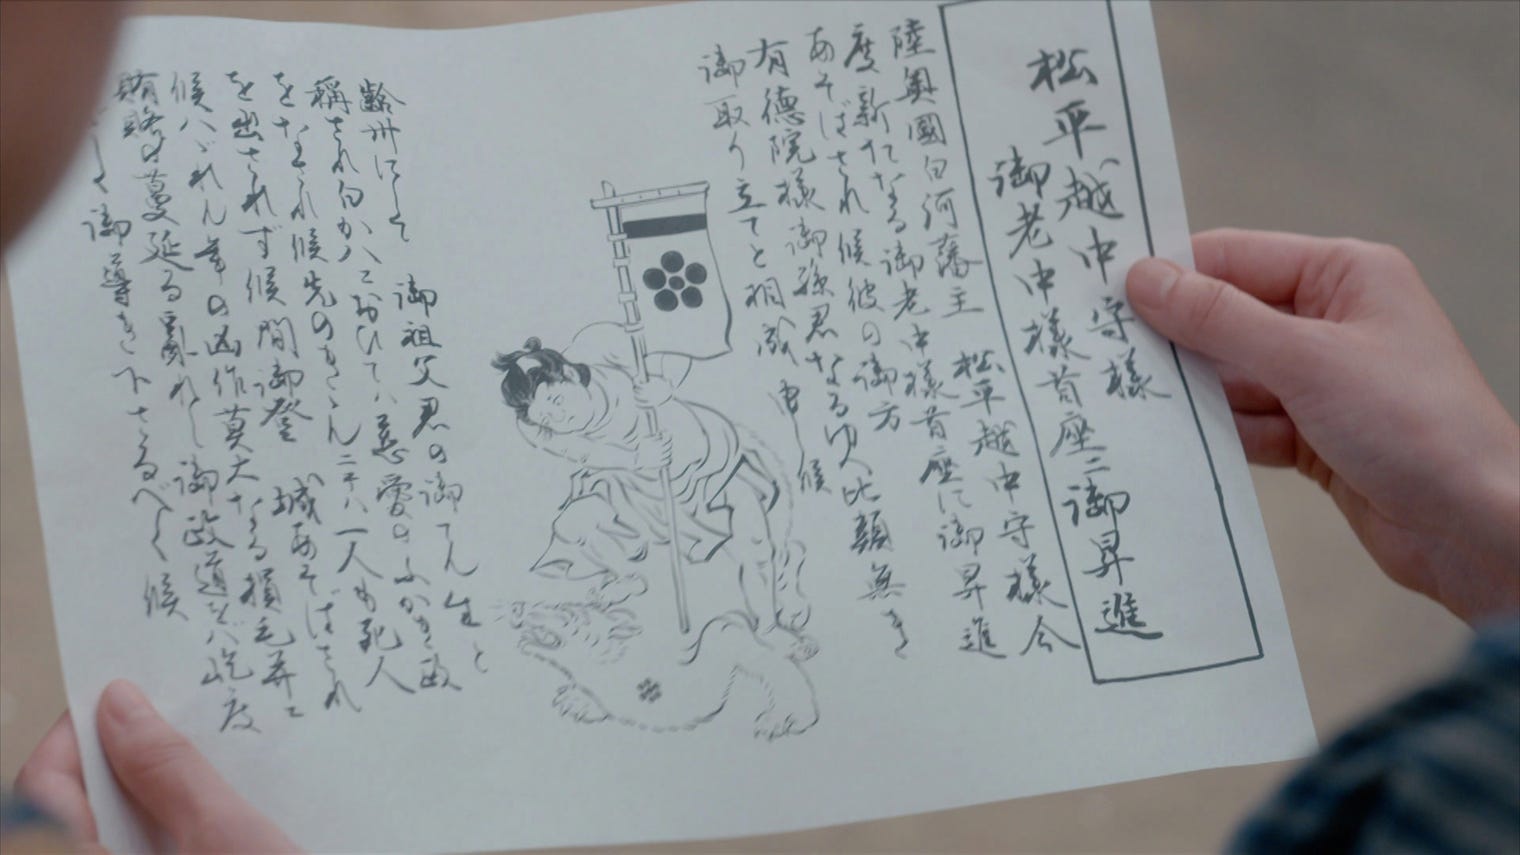 松平越中守様
御老中様首座ニ御昇進
陸奥國白河藩主 松平越中守様今
度新たなる御老中様首座に御昇進
あそばされ候彼の御方
有徳院様御孫君なるゆへ比類無き
御取り立てと相成申し候
齢卅にして 御祖父君の御てん生と
称され白かハにおひてハ慈愛のふかき政
をなされ候先のきゝんニテハ一人も死人
を出されず候間御登 城あそばされ
候ハゞれん年の凶作莫大なる損毛并て
賄賂の蔓延る亂れし御政道をバ屹度
しく御導き下さるべく候